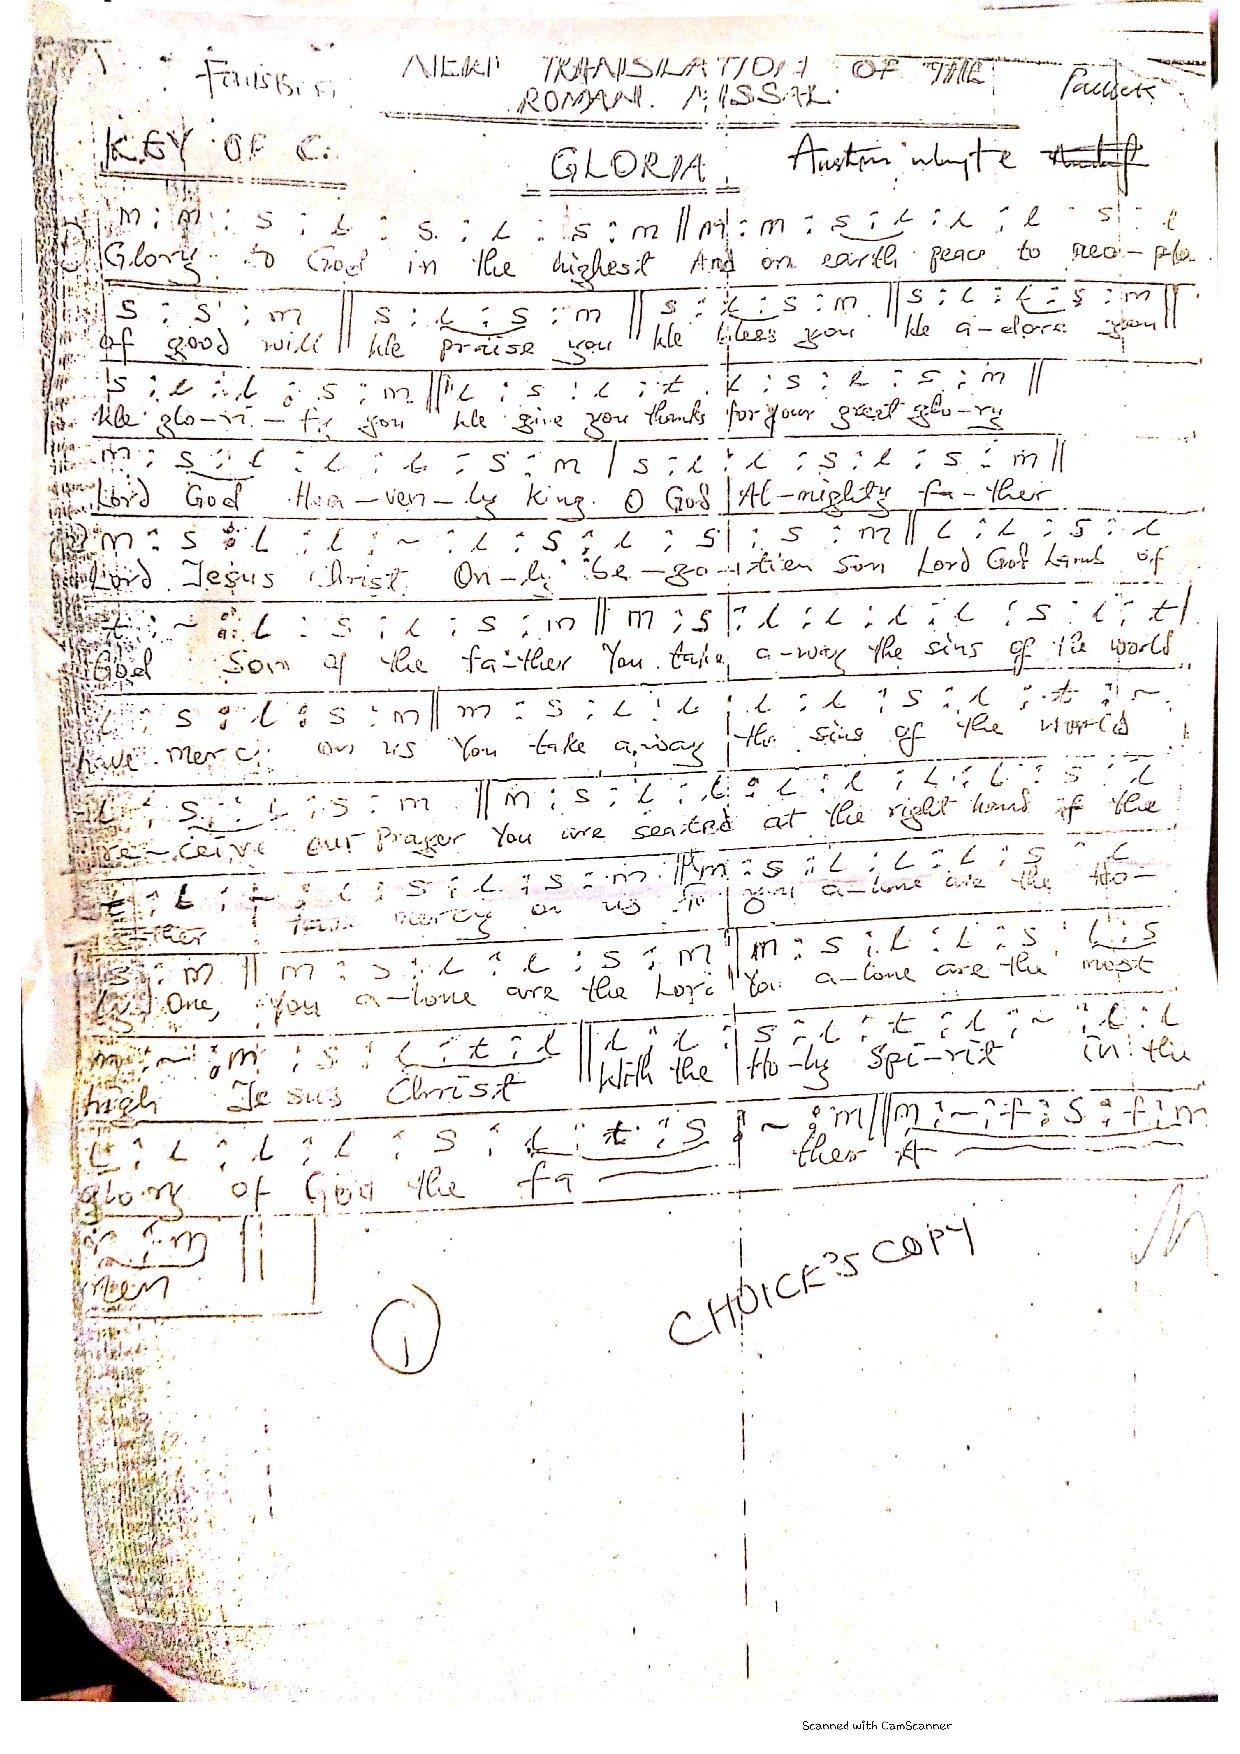 NEW TRANSLATION OF THE
ROMAN MISSAL
KEY OF C.
GLORIA
Austin whyte
m : m : s : l : s : l : s : m || m : m : s : l : l : l : s : l
Glory to God in the highest And on earth peace to peo-ple
s : s : m || s : l : s : m || s : l : s : m || s : l : l : s : m ||
of good will We praise you We bless you We a-dore you
s : l : l : s : m || l : s : l : t : l : s : l : s : m ||
We glo-ri-fy you We give you thanks for your great glo-ry
m : s : l : l : l : s : m / s : l : l : s : l : s : m ||
Lord God Hea-ven-ly King. O God Al-mighty fa-ther
m : s : l : l : ~ : l : s : l : s : s : m || l : l : s : l
Lord Jesus Christ On-ly be-go-tten Son Lord God Lamb of
t : ~ : l : s : l : s : m || m : s : l : l : l : l : s : l : t
God Son of the fa-ther You take a-way the sins of the world
l : s : l : s : m || m : s : l : l : l : l : s : l : t : ~
have mercy on us You take away the sins of the world
l : s : l : s : m || m : s : l : l : l : l : l : l : s : l
re-ceive our prayer You are seated at the right hand of the
mercy on us a-lone are the Ho-
s : m || m : s : l : l : s : m || m : s : l : l : s : l : s
One, You a-lone are the Lord You a-lone are the most
m : ~ : m : s : l : t : l || l : l : s : l : t : l : ~ : l : l
high Jesus Christ With the Ho-ly Spi-rit in the
l : l : l : l : s : l : t : s : ~ : m || m : ~ : f : s : f : m
glory of God the fa ther A
: m ||
men
1
CHOICE'S COPY
Scanned with CamScanner